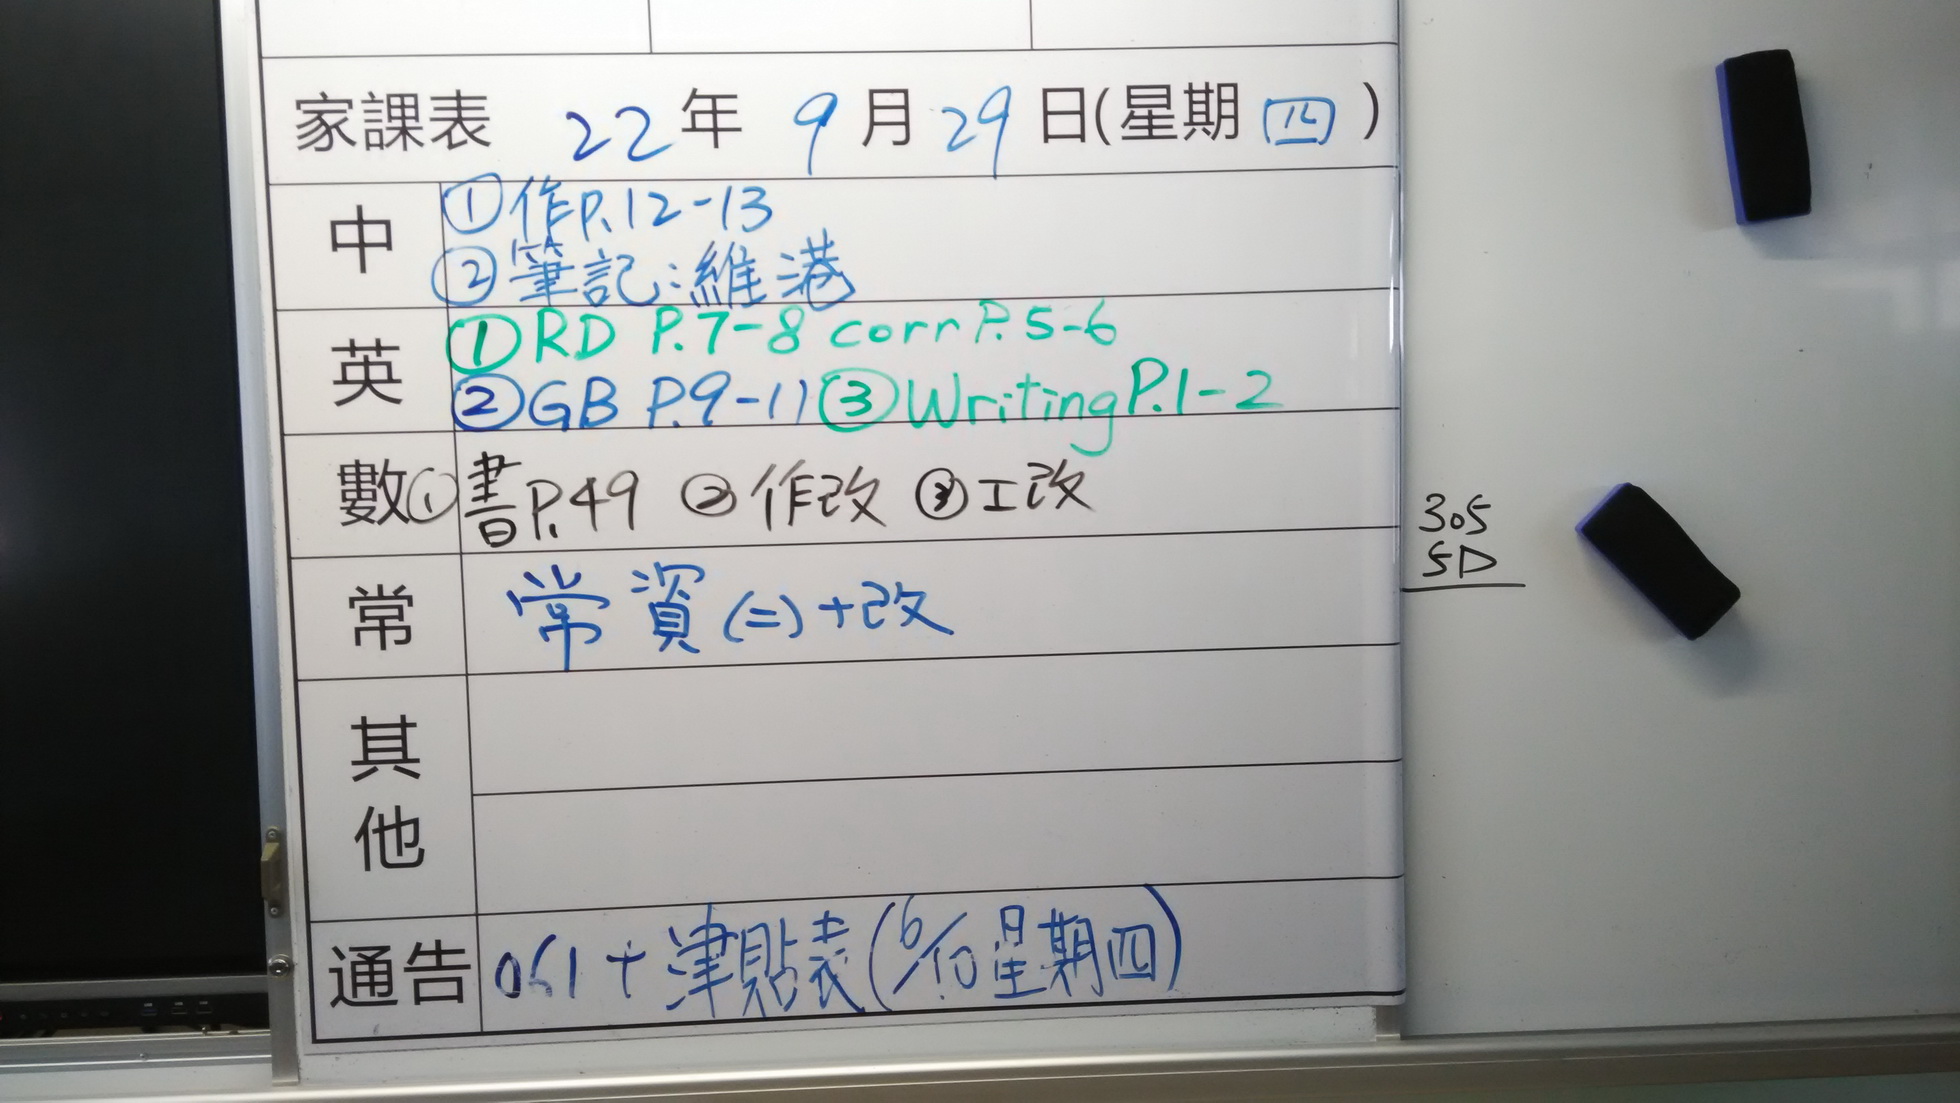 家課表 22年 9月29日(星期四)
中 ①作P.12-13
②筆記:維港
英 ①RD P.7-8 corr P.5-6
②GB P.9-11 ③Writing P.1-2
數 ①書P.49 ②作改 ③工改
常 常資(二)+改
其他
通告 061+津貼表(6/10星期四)
305
5D